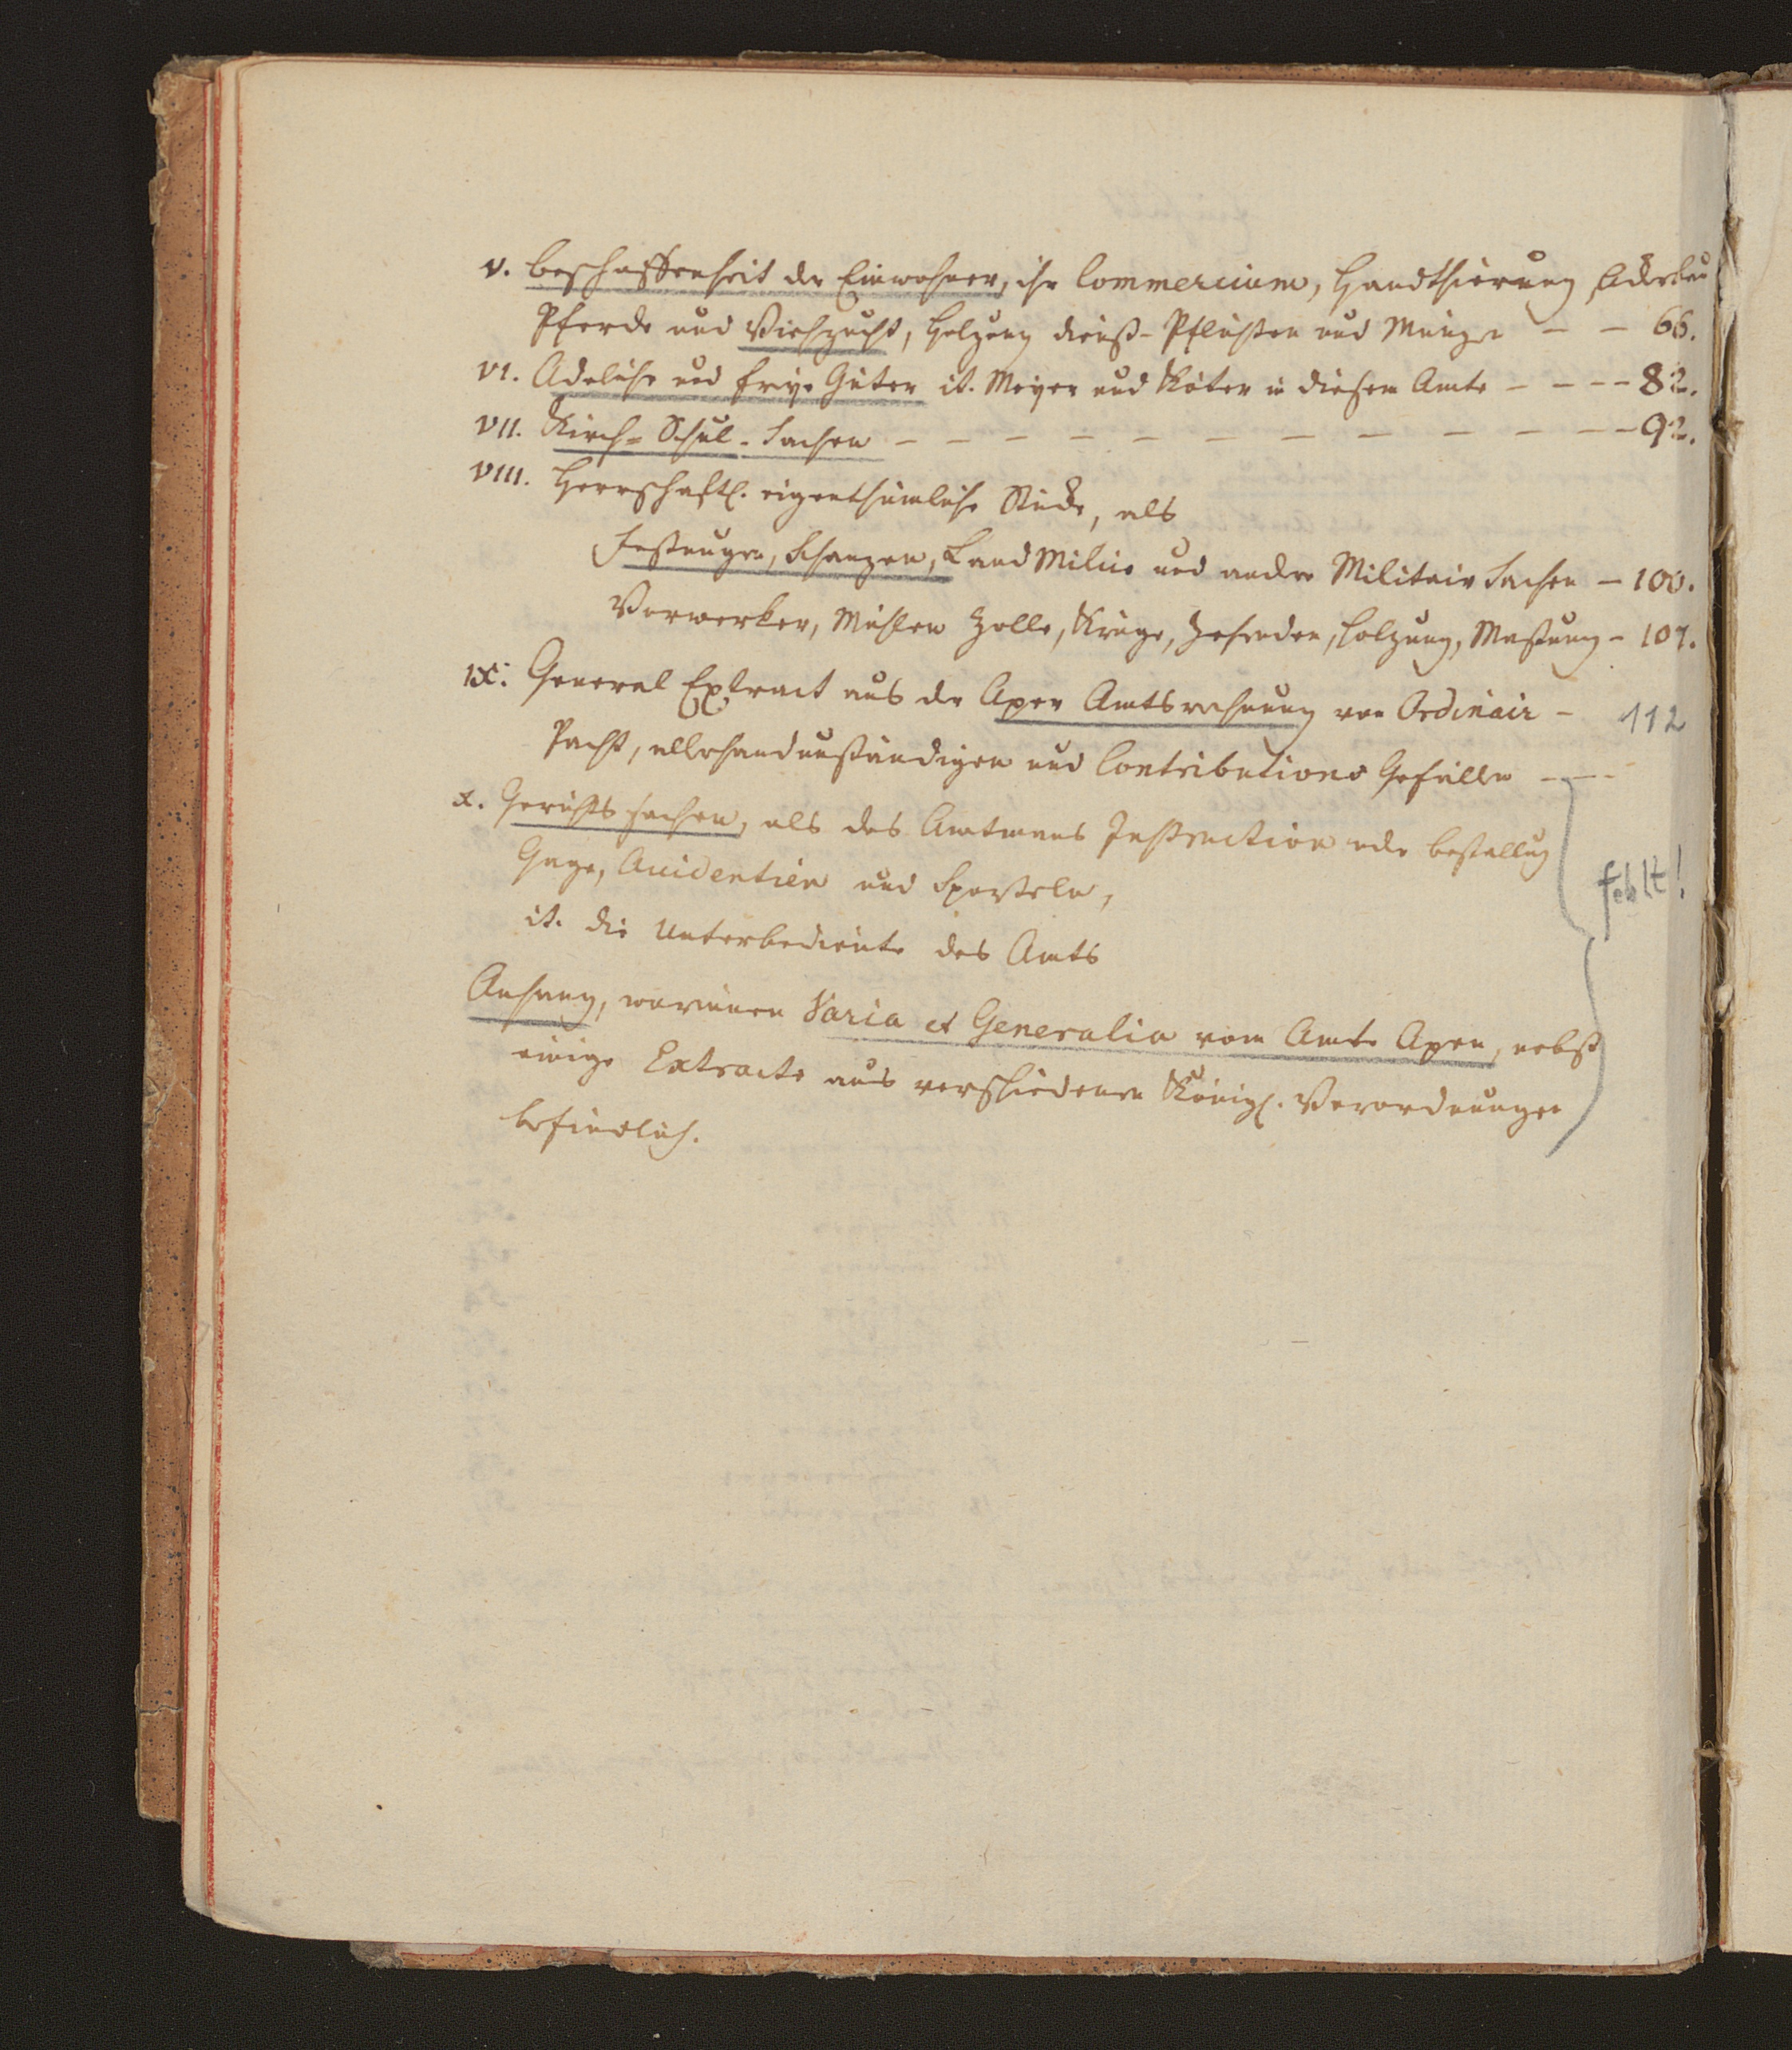 V. Beschaffenheit der Einwohner, ihr Commercium, Handthierung Ackerbau
Pferde und Viehzucht, Holzung dienst-Pflichten und Müntze – – 66.
VI. Adeliche und freye Güter it. Meyer und Köter in diesem Amte – – – – 82.
VII. Kirch- Schul- Sachen – – – – – – – – – – – – 92.
VIII. Herrschaftl. eigenthümliche Stücke, als
Festungen, Schanzen, Land Milice und andre Militair Sachen – 100.
Vorwerker, Mühlen Zölle, Krüge, Zehenden, Holzung, Mastung – 107.
IX. General Extract aus der Aper Amtsrechnung von Ordinair – 112
Pacht, allerhand unständigen und Contributions Gefälle – – –
X. Gerichts sachen, als des Amtmans Instruction oder Bestallung
Gage, Accidentien und Sportela,
it. die Unterbediente des Amts
fehlt!
Anhang, worinnen Varia et Generalia vom Amte Apen, nebst
einige Extracte aus verschiedenen Königl. Verordnungen
befindlich.